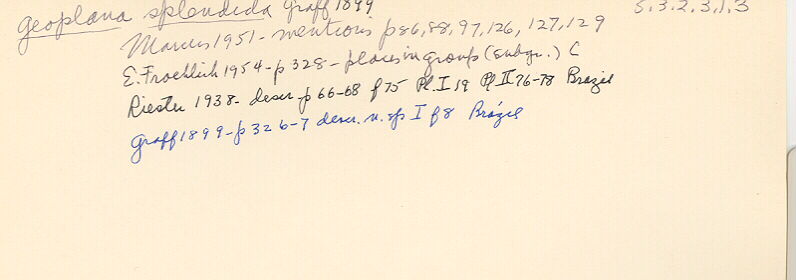 Geoplana splendida Graff 1899 5.3.2.3.1.3
Marcus 1951 - mentions p86,88,97,126, 127,129
E. Froehlich 1954 - p 328 - places in group (subgr.) C
Riester 1938 - descr p 66-68 f 75 Pl. I 19 Pl II 76-78 Brazil
Graff 1899 - p 326-7 descr. n. sp I f 8 Brazil